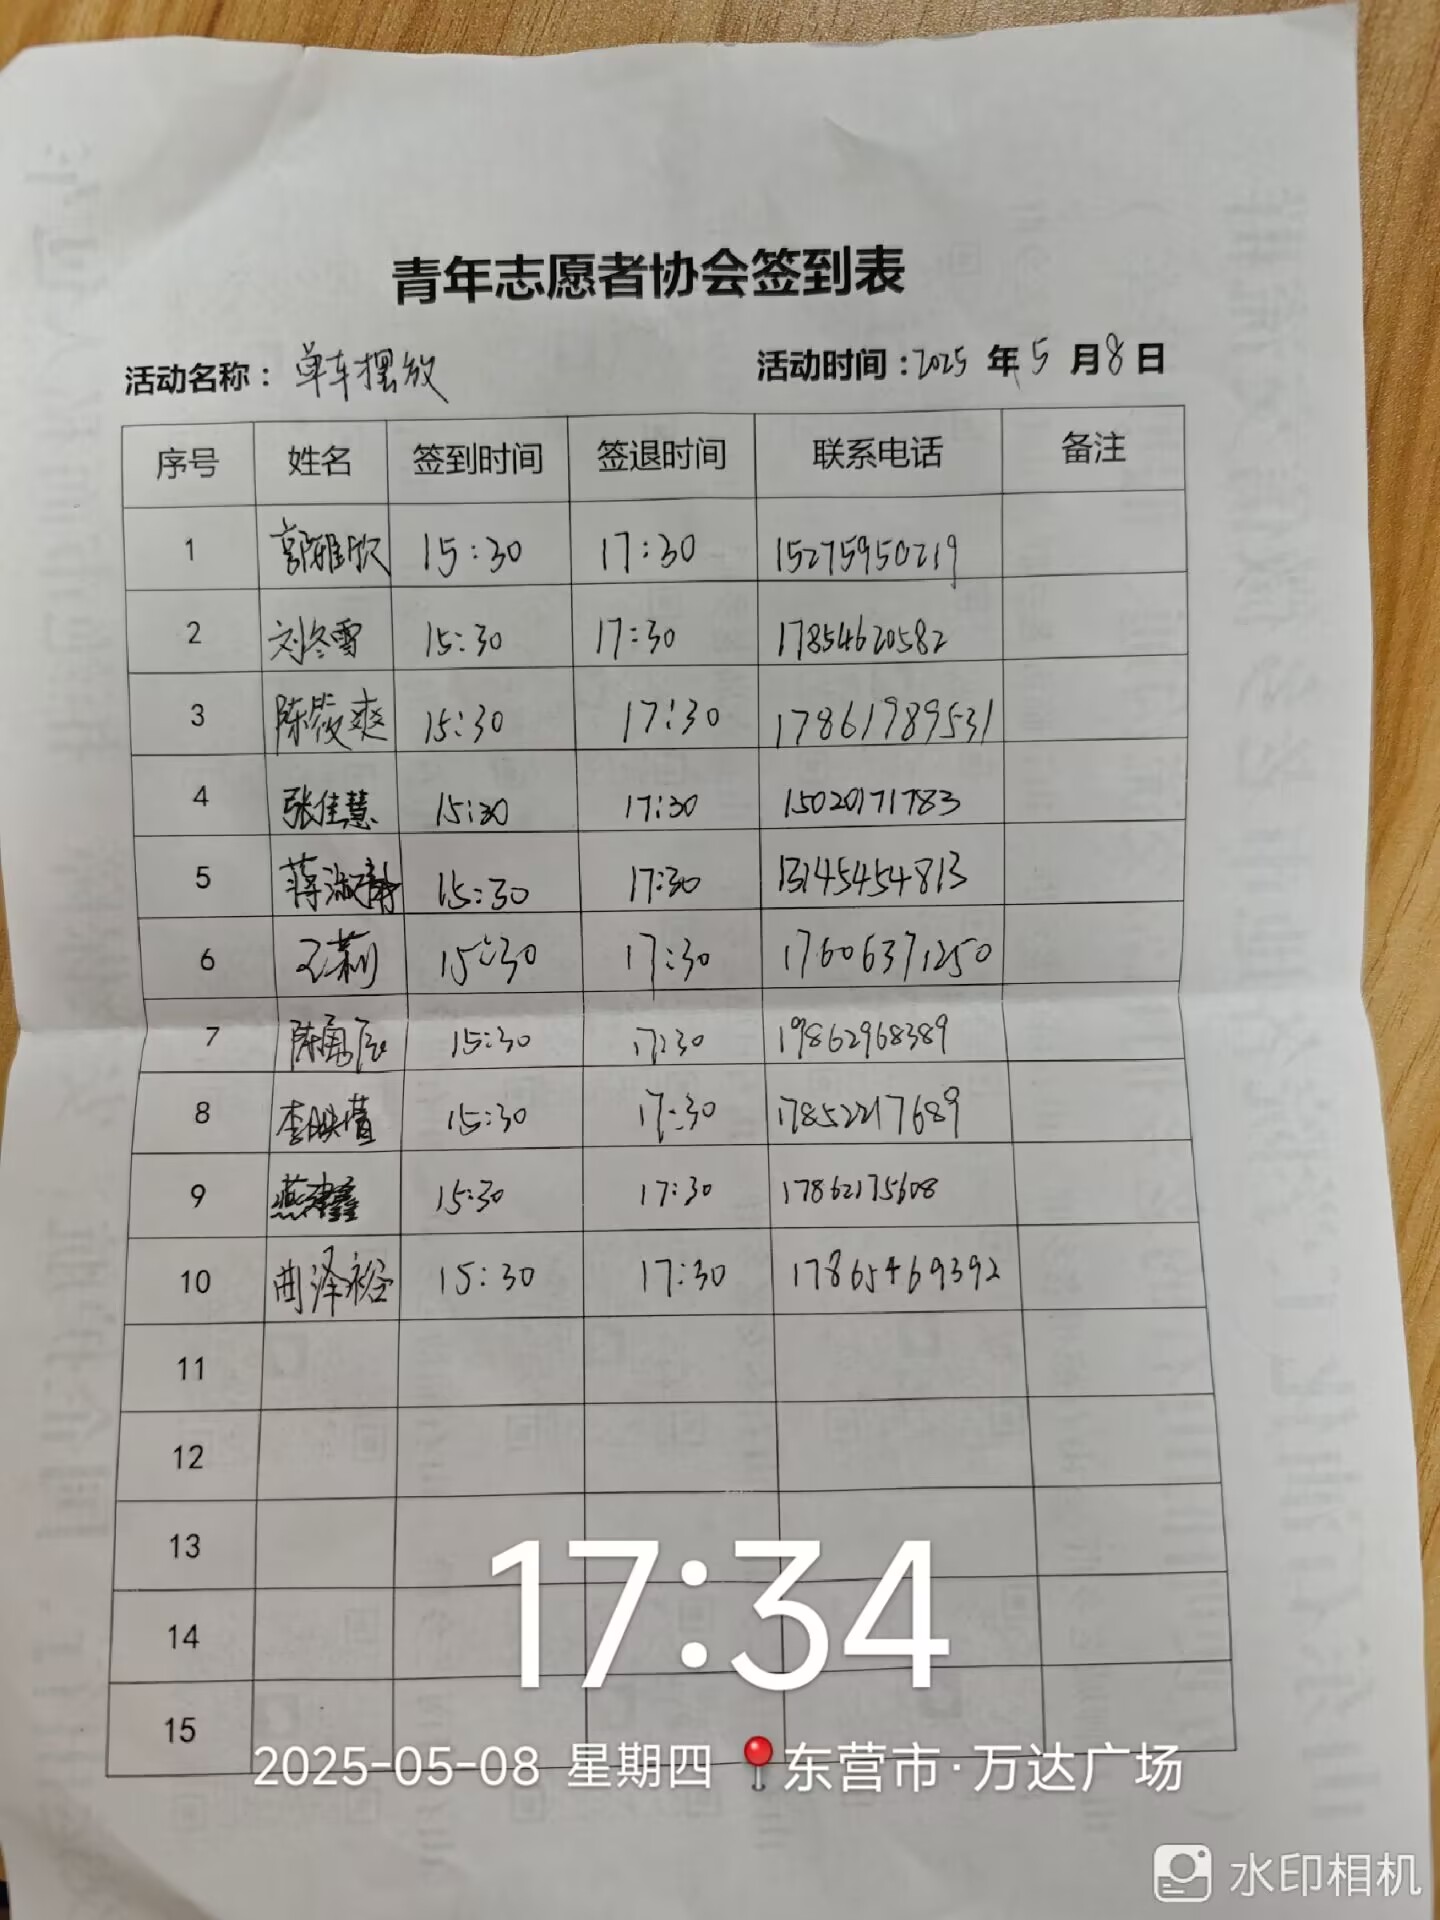 青年志愿者协会签到表
活动名称：单车摆放 活动时间：2025 年 5 月 8 日
序号 姓名 签到时间 签退时间 联系电话 备注
1 郭雅欣 15:30 17:30 15275950219
2 刘冬雪 15:30 17:30 17854620582
3 陈筱爽 15:30 17:30 17861789531
4 张佳慧 15:30 17:30 15020171783
5 蒋淑静 15:30 17:30 13145454813
6 王莉 15:30 17:30 17606371250
7 15:30 17:30 19862968389
8 15:30 17:30 17852217689
9 15:30 17:30 17862175608
10 曲泽裕 15:30 17:30 17865469392
11
12
13
14
15
17:34
2025-05-08 星期四 东营市·万达广场
水印相机